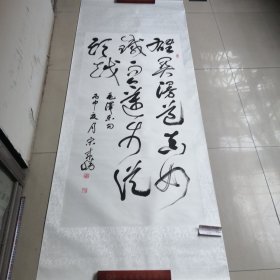 雄关漫道真如
铁而今迈步从
头越
毛泽东句
丙申夏月